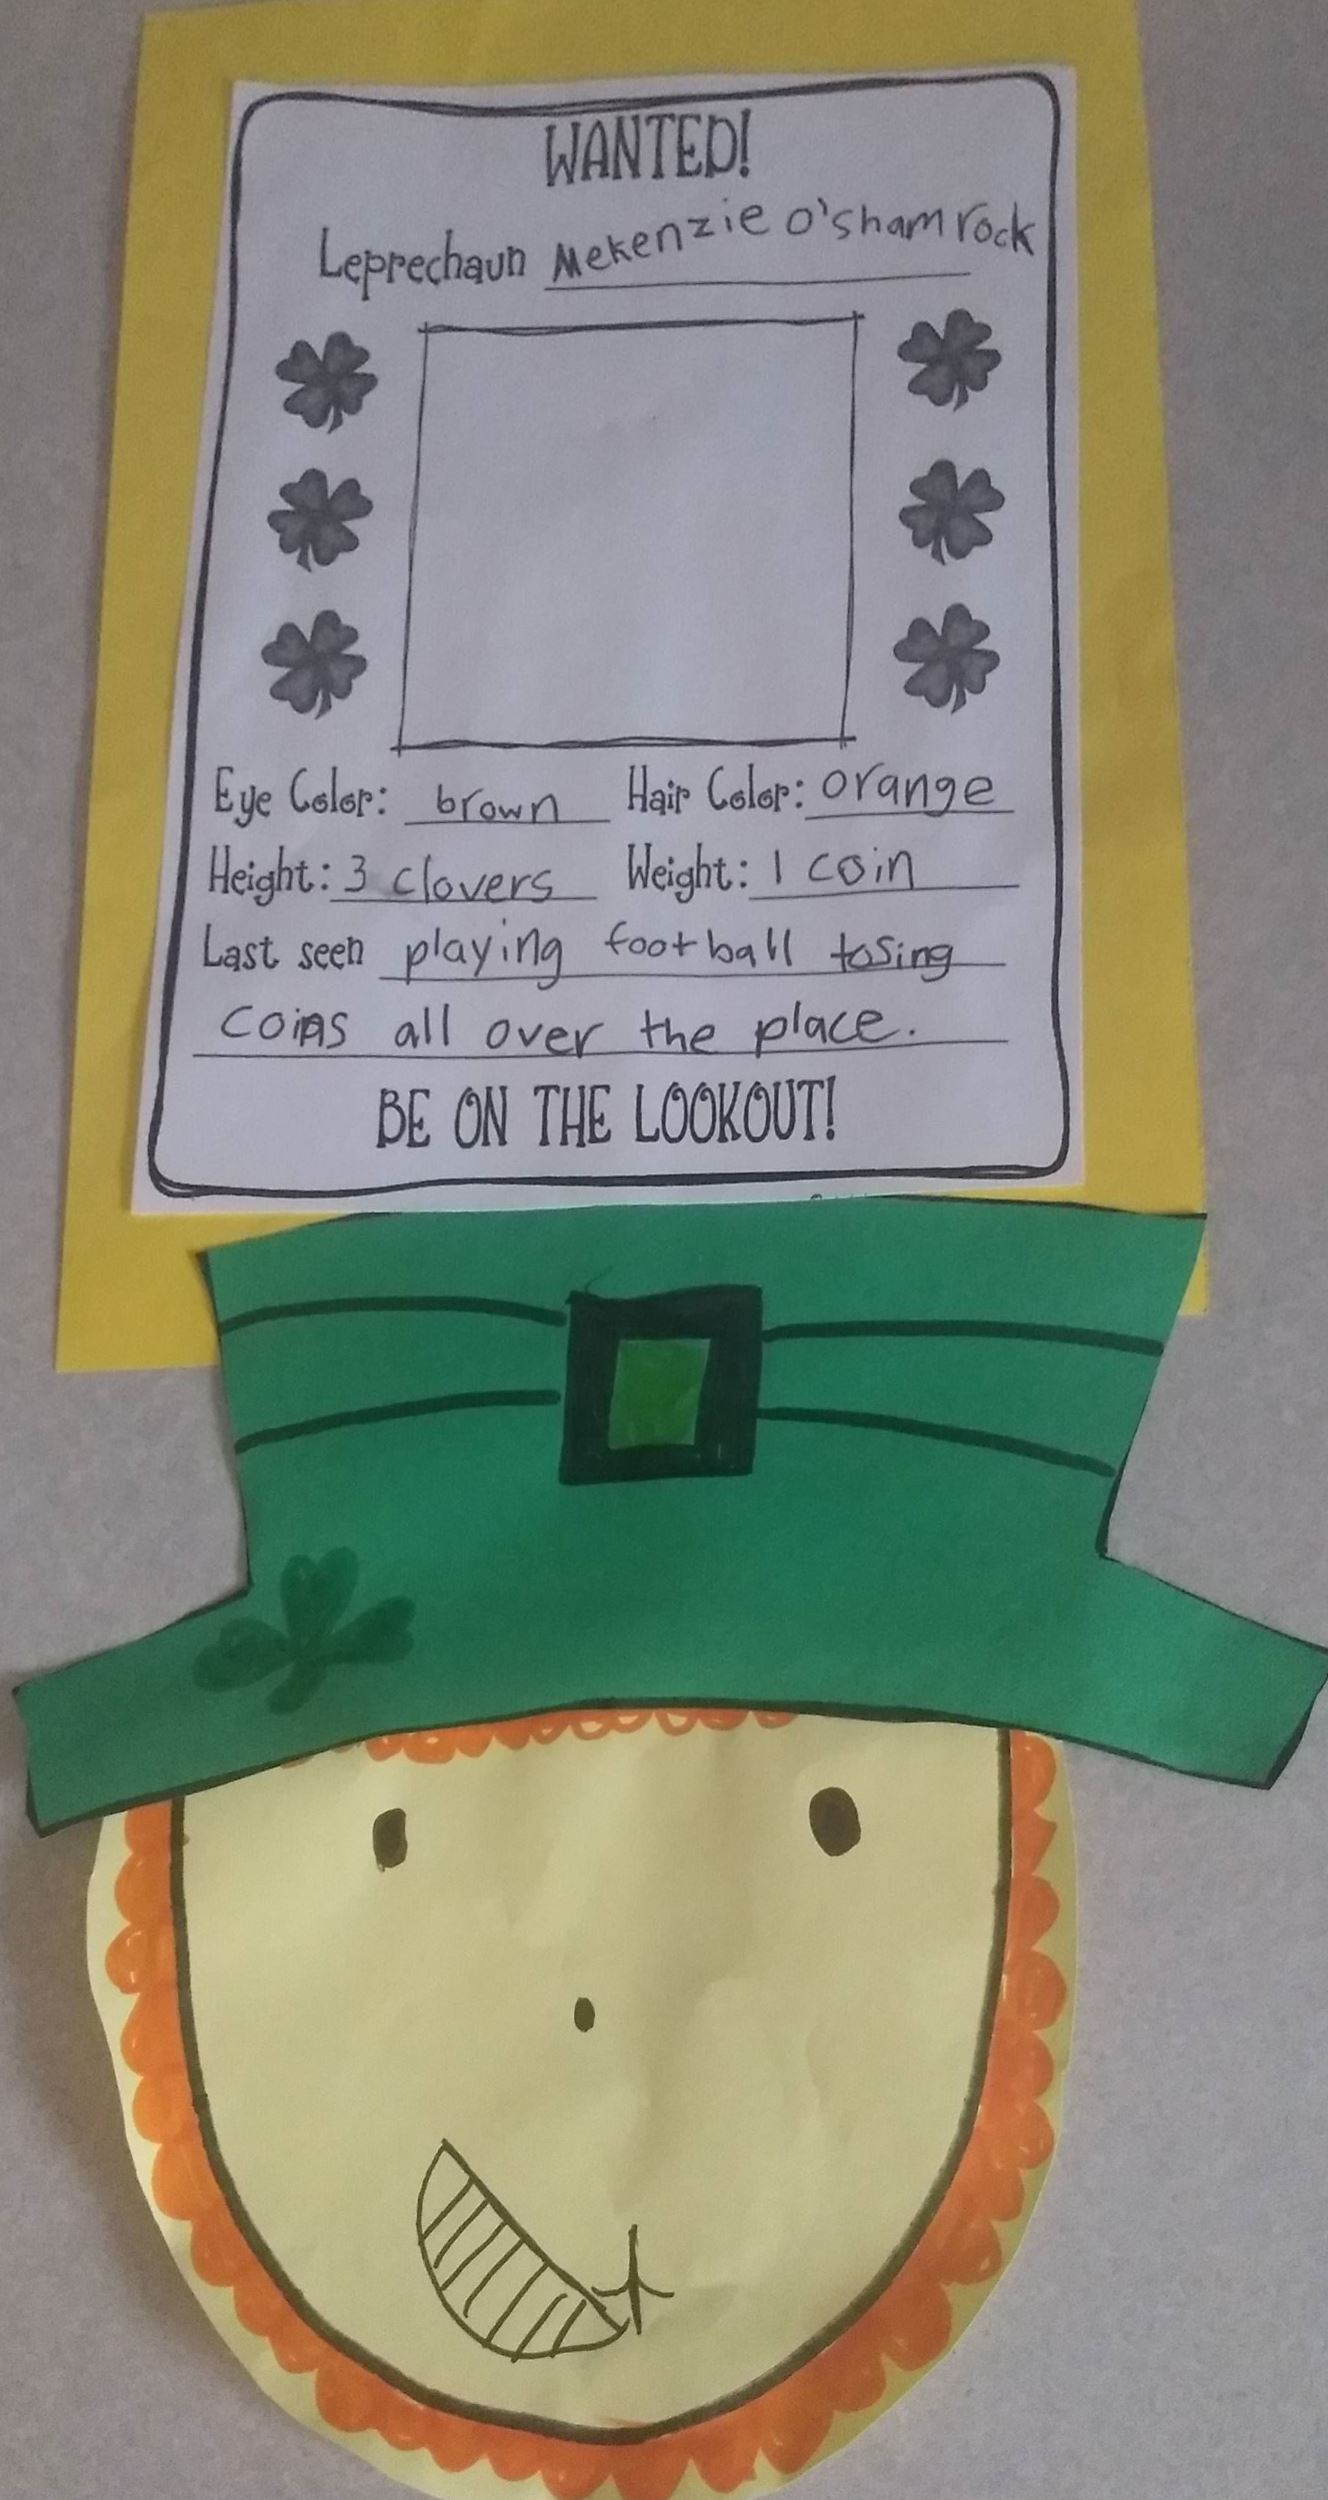 WANTED!
Leprechaun Mekenzie O'Shamrock
Eye Color: brown Hair Color: orange
Height: 3 clovers Weight: 1 coin
Last seen playing football tosing
coins all over the place.
BE ON THE LOOKOUT!